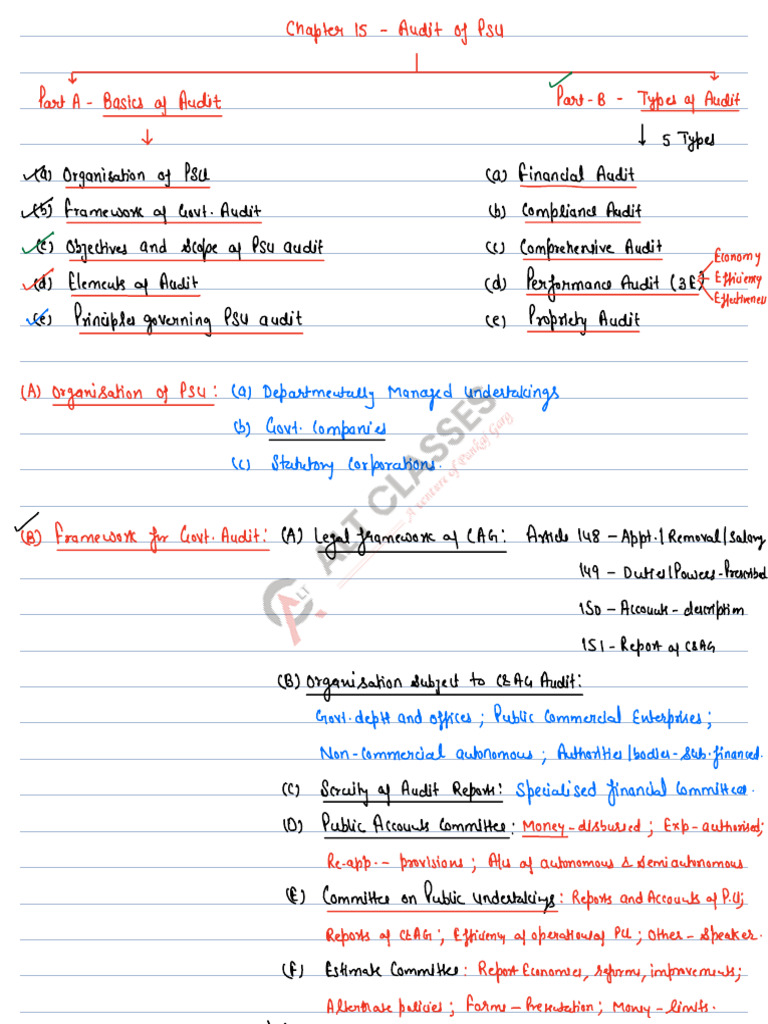 Chapter 15 - Audit of PSU
Part A - Basics of Audit
Part-B - Types of Audit
5 Types
(a) Organisation of PSU
(b) Framework of Govt. Audit
(c) Objectives and Scope of PSU audit
(d) Elements of Audit
(e) Principles governing PSU audit
(a) Financial Audit
(b) Compliance Audit
(c) Comprehensive Audit
(d) Performance Audit (3E)
Economy
Efficiency
Effectiveness
(e) Propriety Audit
(A) Organisation of PSU: (a) Departmentally Managed Undertakings
(b) Govt. Companies
(c) Statutory Corporations.
(B) Framework for Govt. Audit: (A) Legal framework of CAG: Article 148 - Appt./Removal/Salary
149 - Duties/Powers-Prescribed
150 - Accounts - description
151 - Report of C&AG
(B) Organisation subject to C&AG Audit:
Govt. deptt and offices ; Public Commercial Enterprises ;
Non-Commercial autonomous ; Authorities/bodies-Sub.financed.
(C) Scruity of Audit Reports: Specialised financial Committees.
(D) Public Accounts Committee: Money-disbursed ; Exp-authorised;
Re-app.- provisions ; A/cs of autonomous & semiautonomous
(E) Committee on Public undertakings: Reports and Accounts of P.U;
Reports of C&AG ; Efficiency of operations of PU ; Other-Speaker.
(F) Estimate Committee: Report Economies, reforms, improvements;
Alternate policies ; Forms-Presentation ; Money-limits.
ALT CLASSES
A venture of Pankaj Garg
LT